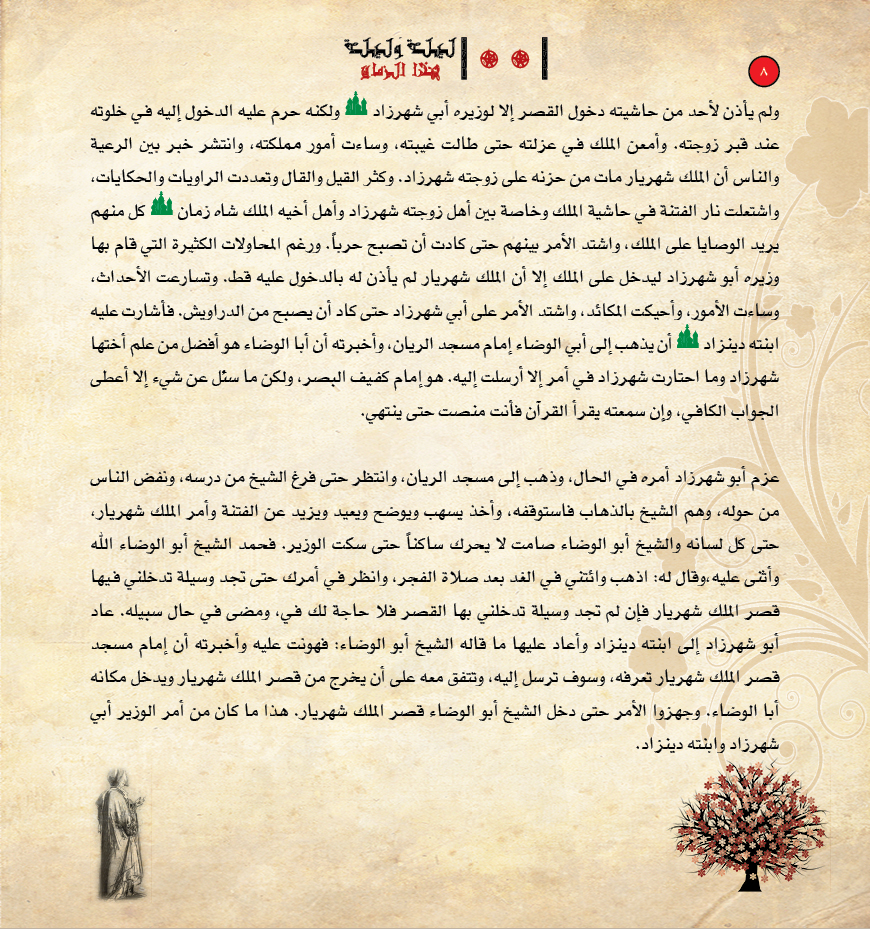 ليلة وليلة
هذا الزمان
٨
ولم يأذن لأحد من حاشيته دخول القصر إلا لوزيره أبي شهرزاد ولكنه حرم عليه الدخول إليه في خلوته
عند قبر زوجته. وأمعن الملك في عزلته حتى طالت غيبته، وساءت أمور مملكته، وانتشر خبر بين الرعية
والناس أن الملك شهريار مات من حزنه على زوجته شهرزاد. وكثر القيل والقال وتعددت الراويات والحكايات،
واشتعلت نار الفتنة في حاشية الملك وخاصة بين أهل زوجته شهرزاد وأهل أخيه الملك شاه زمان كل منهم
يريد الوصايا على الملك، واشتد الأمر بينهم حتى كادت أن تصبح حرباً. ورغم المحاولات الكثيرة التي قام بها
وزيره أبو شهرزاد ليدخل على الملك إلا أن الملك شهريار لم يأذن له بالدخول عليه قط. وتسارعت الأحداث،
وساءت الأمور، وأحيكت المكائد، واشتد الأمر على أبي شهرزاد حتى كاد أن يصبح من الدراويش. فأشارت عليه
ابنته دينزاد أن يذهب إلى أبي الوضاء إمام مسجد الريان، وأخبرته أن أبا الوضاء هو أفضل من علم أختها
شهرزاد وما احتارت شهرزاد في أمر إلا أرسلت إليه. هو إمام كفيف البصر، ولكن ما سئل عن شيء إلا أعطى
الجواب الكافي، وإن سمعته يقرأ القرآن فأنت منصت حتى ينتهي.
عزم أبو شهرزاد أمره في الحال، وذهب إلى مسجد الريان، وانتظر حتى فرغ الشيخ من درسه، ونفض الناس
من حوله، وهم الشيخ بالذهاب فاستوقفه، وأخذ يسهب ويوضح ويعيد ويزيد عن الفتنة وأمر الملك شهريار،
حتى كل لسانه والشيخ أبو الوضاء صامت لا يحرك ساكناً حتى سكت الوزير. فحمد الشيخ أبو الوضاء الله
وأثنى عليه،وقال له: اذهب وائتني في الغد بعد صلاة الفجر، وانظر في أمرك حتى تجد وسيلة تدخلني فيها
قصر الملك شهريار فإن لم تجد وسيلة تدخلني بها القصر فلا حاجة لك في، ومضى في حال سبيله. عاد
أبو شهرزاد إلى ابنته دينزاد وأعاد عليها ما قاله الشيخ أبو الوضاء: فهونت عليه وأخبرته أن إمام مسجد
قصر الملك شهريار تعرفه، وسوف ترسل إليه، وتتفق معه على أن يخرج من قصر الملك شهريار ويدخل مكانه
أبا الوضاء. وجهزوا الأمر حتى دخل الشيخ أبو الوضاء قصر الملك شهريار. هذا ما كان من أمر الوزير أبي
شهرزاد وابنته دينزاد.